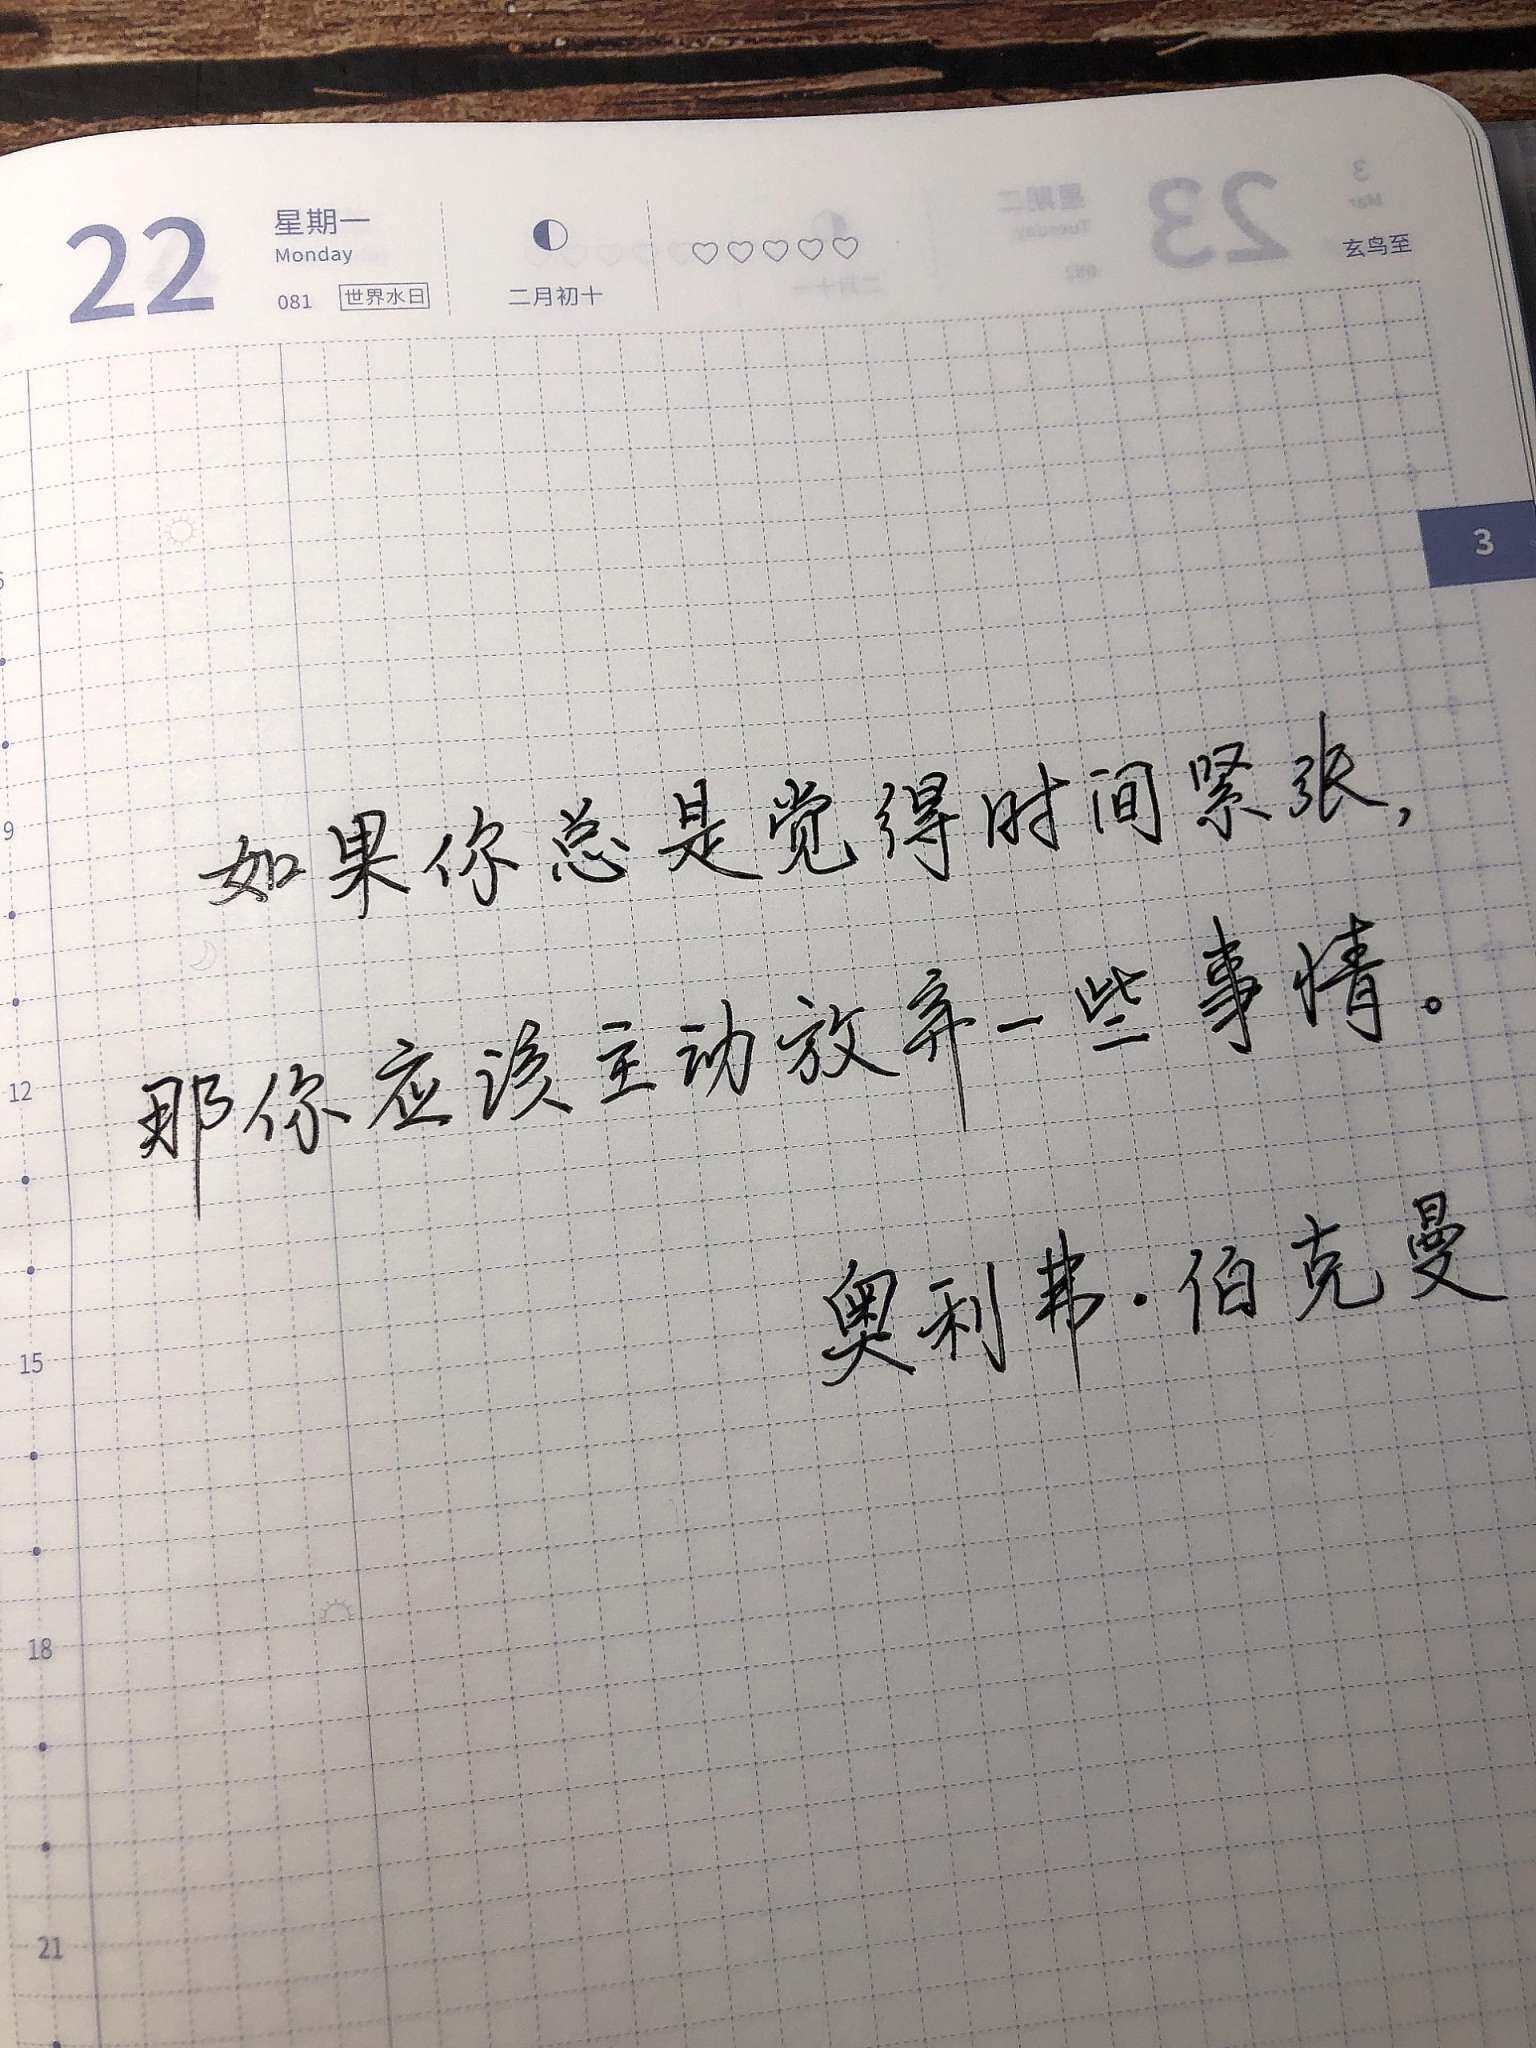 22 星期一
Monday
081 世界水日
二月初十
玄鸟至
3
如果你总是觉得时间紧张,
9
那你应该主动放弃一些事情。
12
奥利弗·伯克曼
15
18
21